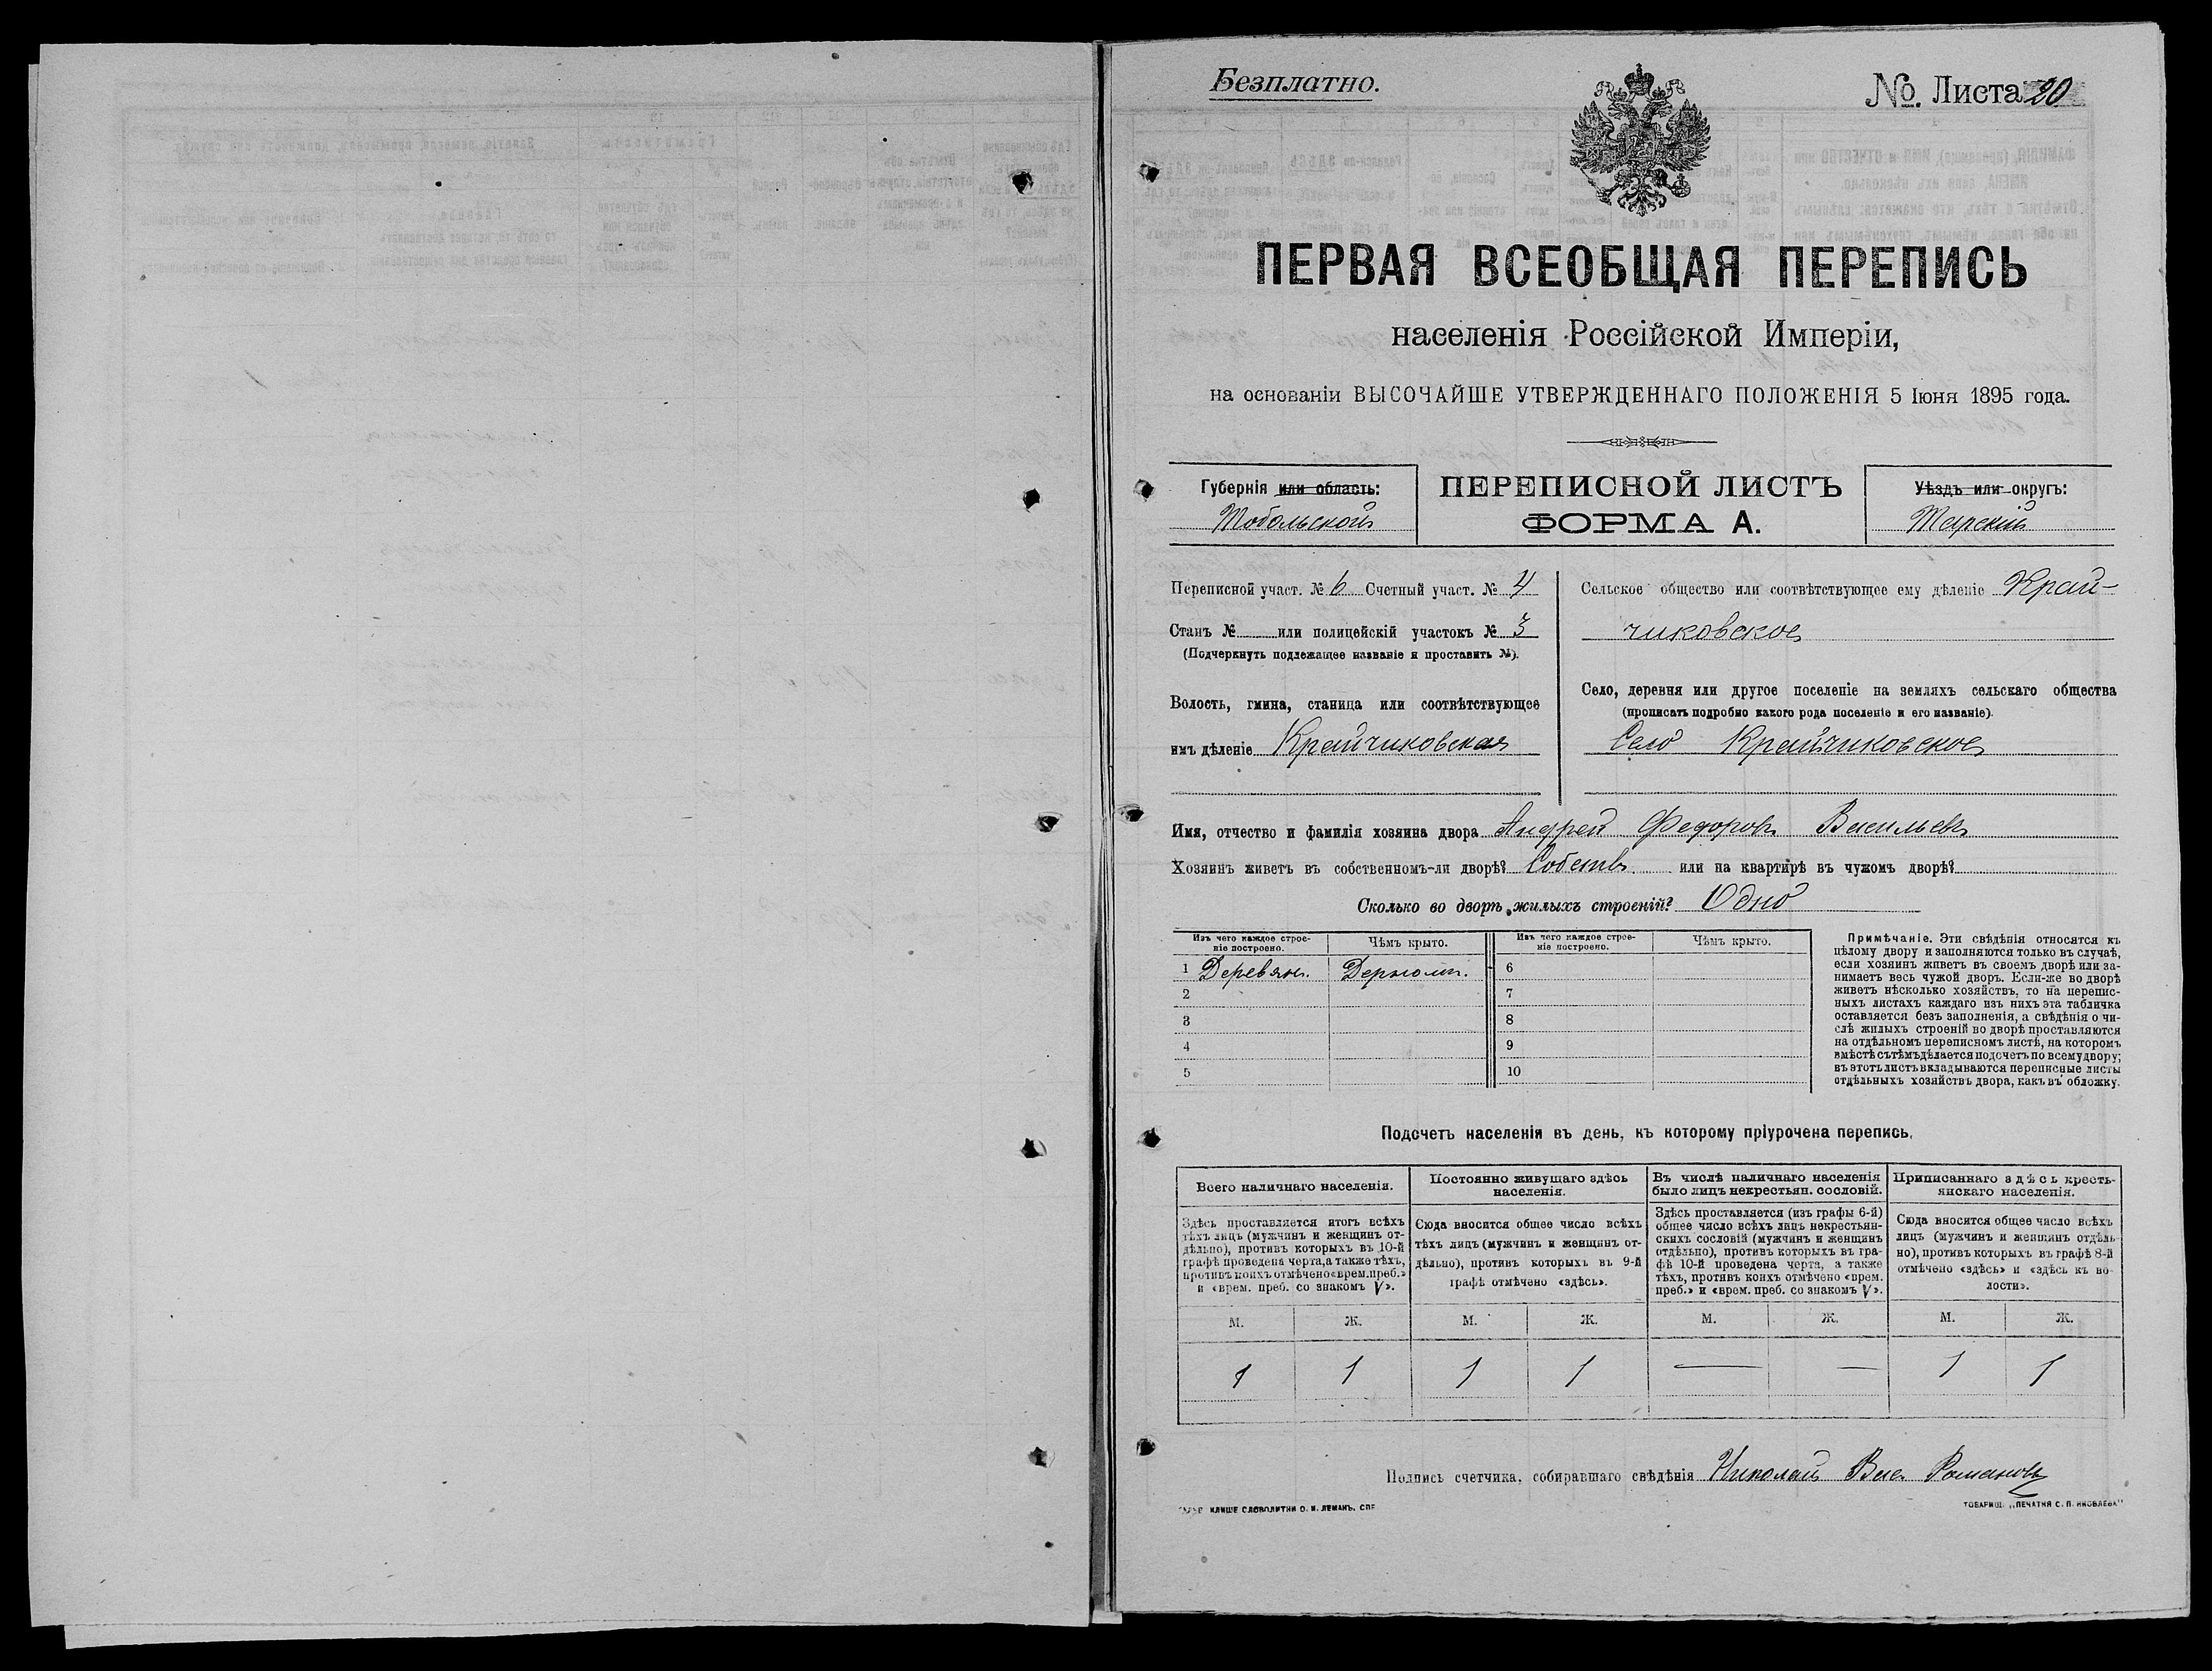 Безплатно.
№. Листа 20
ПЕРВАЯ ВСЕОБЩАЯ ПЕРЕПИСЬ
населенія Россійской Имперіи,
на основаніи ВЫСОЧАЙШЕ УТВЕРЖДЕННАГО ПОЛОЖЕНІЯ 5 Іюня 1895 года.
Губернія или область:
Тобольской
ПЕРЕПИСНОЙ ЛИСТЪ
ФОРМА А.
Уѣздъ или округъ:
Тарскій
Переписной участ. № 6 Счетный участ. № 4
Станъ № или полицейскій участокъ № 3
(Подчеркнуть подлежащее названіе и проставить №).
Волость, гмина, станица или соотвѣтствующее
имъ дѣленіе Крайчиковская
Сельское общество или соотвѣтствующее ему дѣленіе Край-
чиковское
Село, деревня или другое поселеніе на земляхъ сельскаго общества
(прописать подробно какого рода поселеніе и его названіе).
Село Крайчиковское
Имя, отчество и фамилія хозяина двора Андрей Федоровъ Васильевъ
Хозяинъ живетъ въ собственномъ-ли дворѣ? Собств. или на квартирѣ въ чужомъ дворѣ?
Сколько во дворѣ жилыхъ строеній? Одно
Изъ чего каждое строе-
ніе построено.
Чѣмъ крыто.
Изъ чего каждое строе-
ніе построено.
Чѣмъ крыто.
1 Деревян. Дерномъ. 6
2 7
3 8
4 9
5 10
Примѣчаніе. Эти свѣдѣнія относятся къ
цѣлому двору и заполняются только въ случаѣ,
если хозяинъ живетъ въ своемъ дворѣ или за-
нимаетъ весь чужой дворъ. Если-же во дворѣ
живетъ нѣсколько хозяйствъ, то на перепис-
ныхъ листахъ каждаго изъ нихъ эта табличка
оставляется безъ заполненія, а свѣдѣнія о чи-
слѣ жилыхъ строеній во дворѣ проставляются
на отдѣльномъ переписномъ листѣ, на которомъ
вмѣстѣ съ тѣмъ дѣлается подсчетъ по всему двору;
въ этотъ листъ вкладываются переписные листы
отдѣльныхъ хозяйствъ двора, какъ въ обложку.
Подсчетъ населенія въ день, къ которому пріурочена перепись.
Всего наличнаго населенія.
Здѣсь проставляется итогъ всѣхъ
тѣхъ лицъ (мужчинъ и женщинъ от-
дѣльно), противъ которыхъ въ 10-й
графѣ проведена черта, а также тѣхъ,
противъ коихъ отмѣчено «врем. преб.»
и «врем. преб. со знакомъ V».
Постоянно живущаго здѣсь
населенія.
Сюда вносится общее число всѣхъ
тѣхъ лицъ (мужчинъ и женщинъ от-
дѣльно), противъ которыхъ въ 9-й
графѣ отмѣчено «здѣсь».
Въ числѣ наличнаго населенія
было лицъ некрестьян. сословій.
Здѣсь проставляется (изъ графы 6-й)
общее число всѣхъ лицъ некрестьян-
скихъ сословій (мужчинъ и женщинъ
отдѣльно), противъ которыхъ въ гра-
фѣ 10-й проведена черта, а также
тѣхъ, противъ коихъ отмѣчено «врем.
преб.» и «врем. преб. со знакомъ V».
Приписаннаго здѣсь кресть-
янскаго населенія.
Сюда вносится общее число всѣхъ
лицъ (мужчинъ и женщинъ отдѣль-
но), противъ которыхъ въ графѣ 8-й
отмѣчено «здѣсь» и «здѣсь къ во-
лости».
М. Ж. М. Ж. М. Ж. М. Ж.
1 1 1 1 — — 1 1
Подпись счетчика, собиравшаго свѣдѣнія Николай Вас. Романовъ
КЛИШЕ СЛОВОЛИТНИ О. И. ЛЕМАНЪ, СПБ
ТОВАРИЩ. „ПЕЧАТНЯ С. П. ЯКОВЛЕВА"